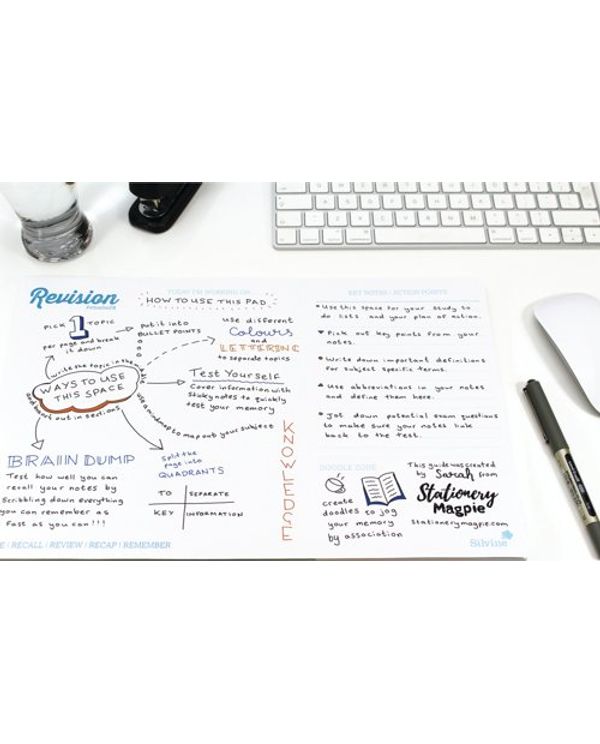 Revision
TODAY I'M WORKING ON
HOW TO USE THIS PAD
PICK 1 TOPIC
per page and break
it down
put it into
BULLET POINTS
use different
Colours
and
LETTERING
to separate topics
write the topic in the middle
WAYS TO USE
THIS SPACE
and work out in sections
Test Yourself
Cover information with
sticky notes to quickly
test your memory
use a mindmap to map out your subject
KNOWLEDGE
BRAIN DUMP
Test how well you can
recall your notes by
scribbling down everything
you can remember as
fast as you can!!!
split the
page into
QUADRANTS
TO SEPARATE
KEY INFORMATION
E / RECALL / REVIEW / RECAP / REMEMBER
KEY NOTES / ACTION POINTS
Use this space for your study to
do lists and your plan of action.
Pick out key points from your
notes.
Write down important definitions
for subject specific terms.
Use abbreviations in your notes
and define them here.
Jot down potential exam questions
to make sure your notes link
back to the test.
DOODLE ZONE
create
doodles to jog
your memory
by association
This guide was created
by Sarah from
Stationery
Magpie
stationerymagpie.com
Silvine